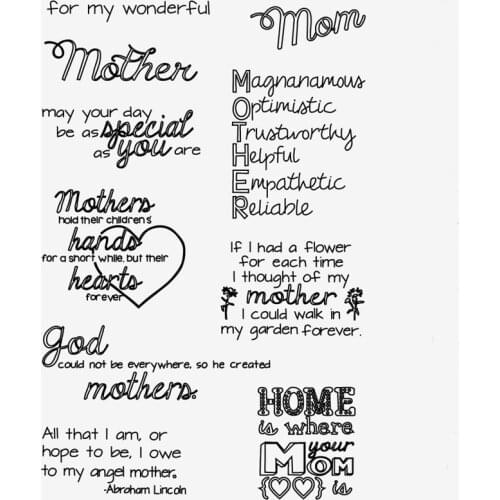 for my wonderful
Mother
may your day
be as special
as you are
Mothers
hold their children's
hands
for a short while, but their
hearts
forever
God
could not be everywhere, so he created
mothers.
All that I am, or
hope to be, I owe
to my angel mother.
-Abraham Lincoln
Mom
Magnanamous
Optimistic
Trustworthy
Helpful
Empathetic
Reliable
If I had a flower
for each time
I thought of my
mother
I could walk in
my garden forever.
HOME
is where
your
MOM
is